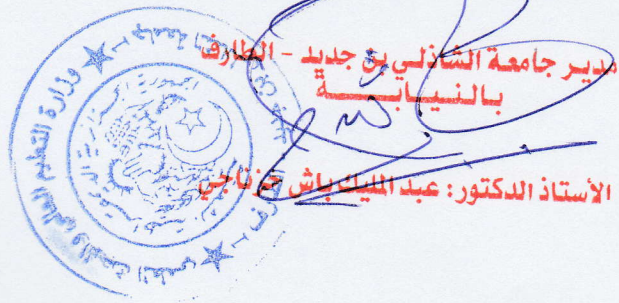 مدير جامعة الشاذلي بن جديد - الطارف
بالنيابة
الأستاذ الدكتور: عبد المليك باش خزناجي
وزارة التعليم العالي والبحث العلمي